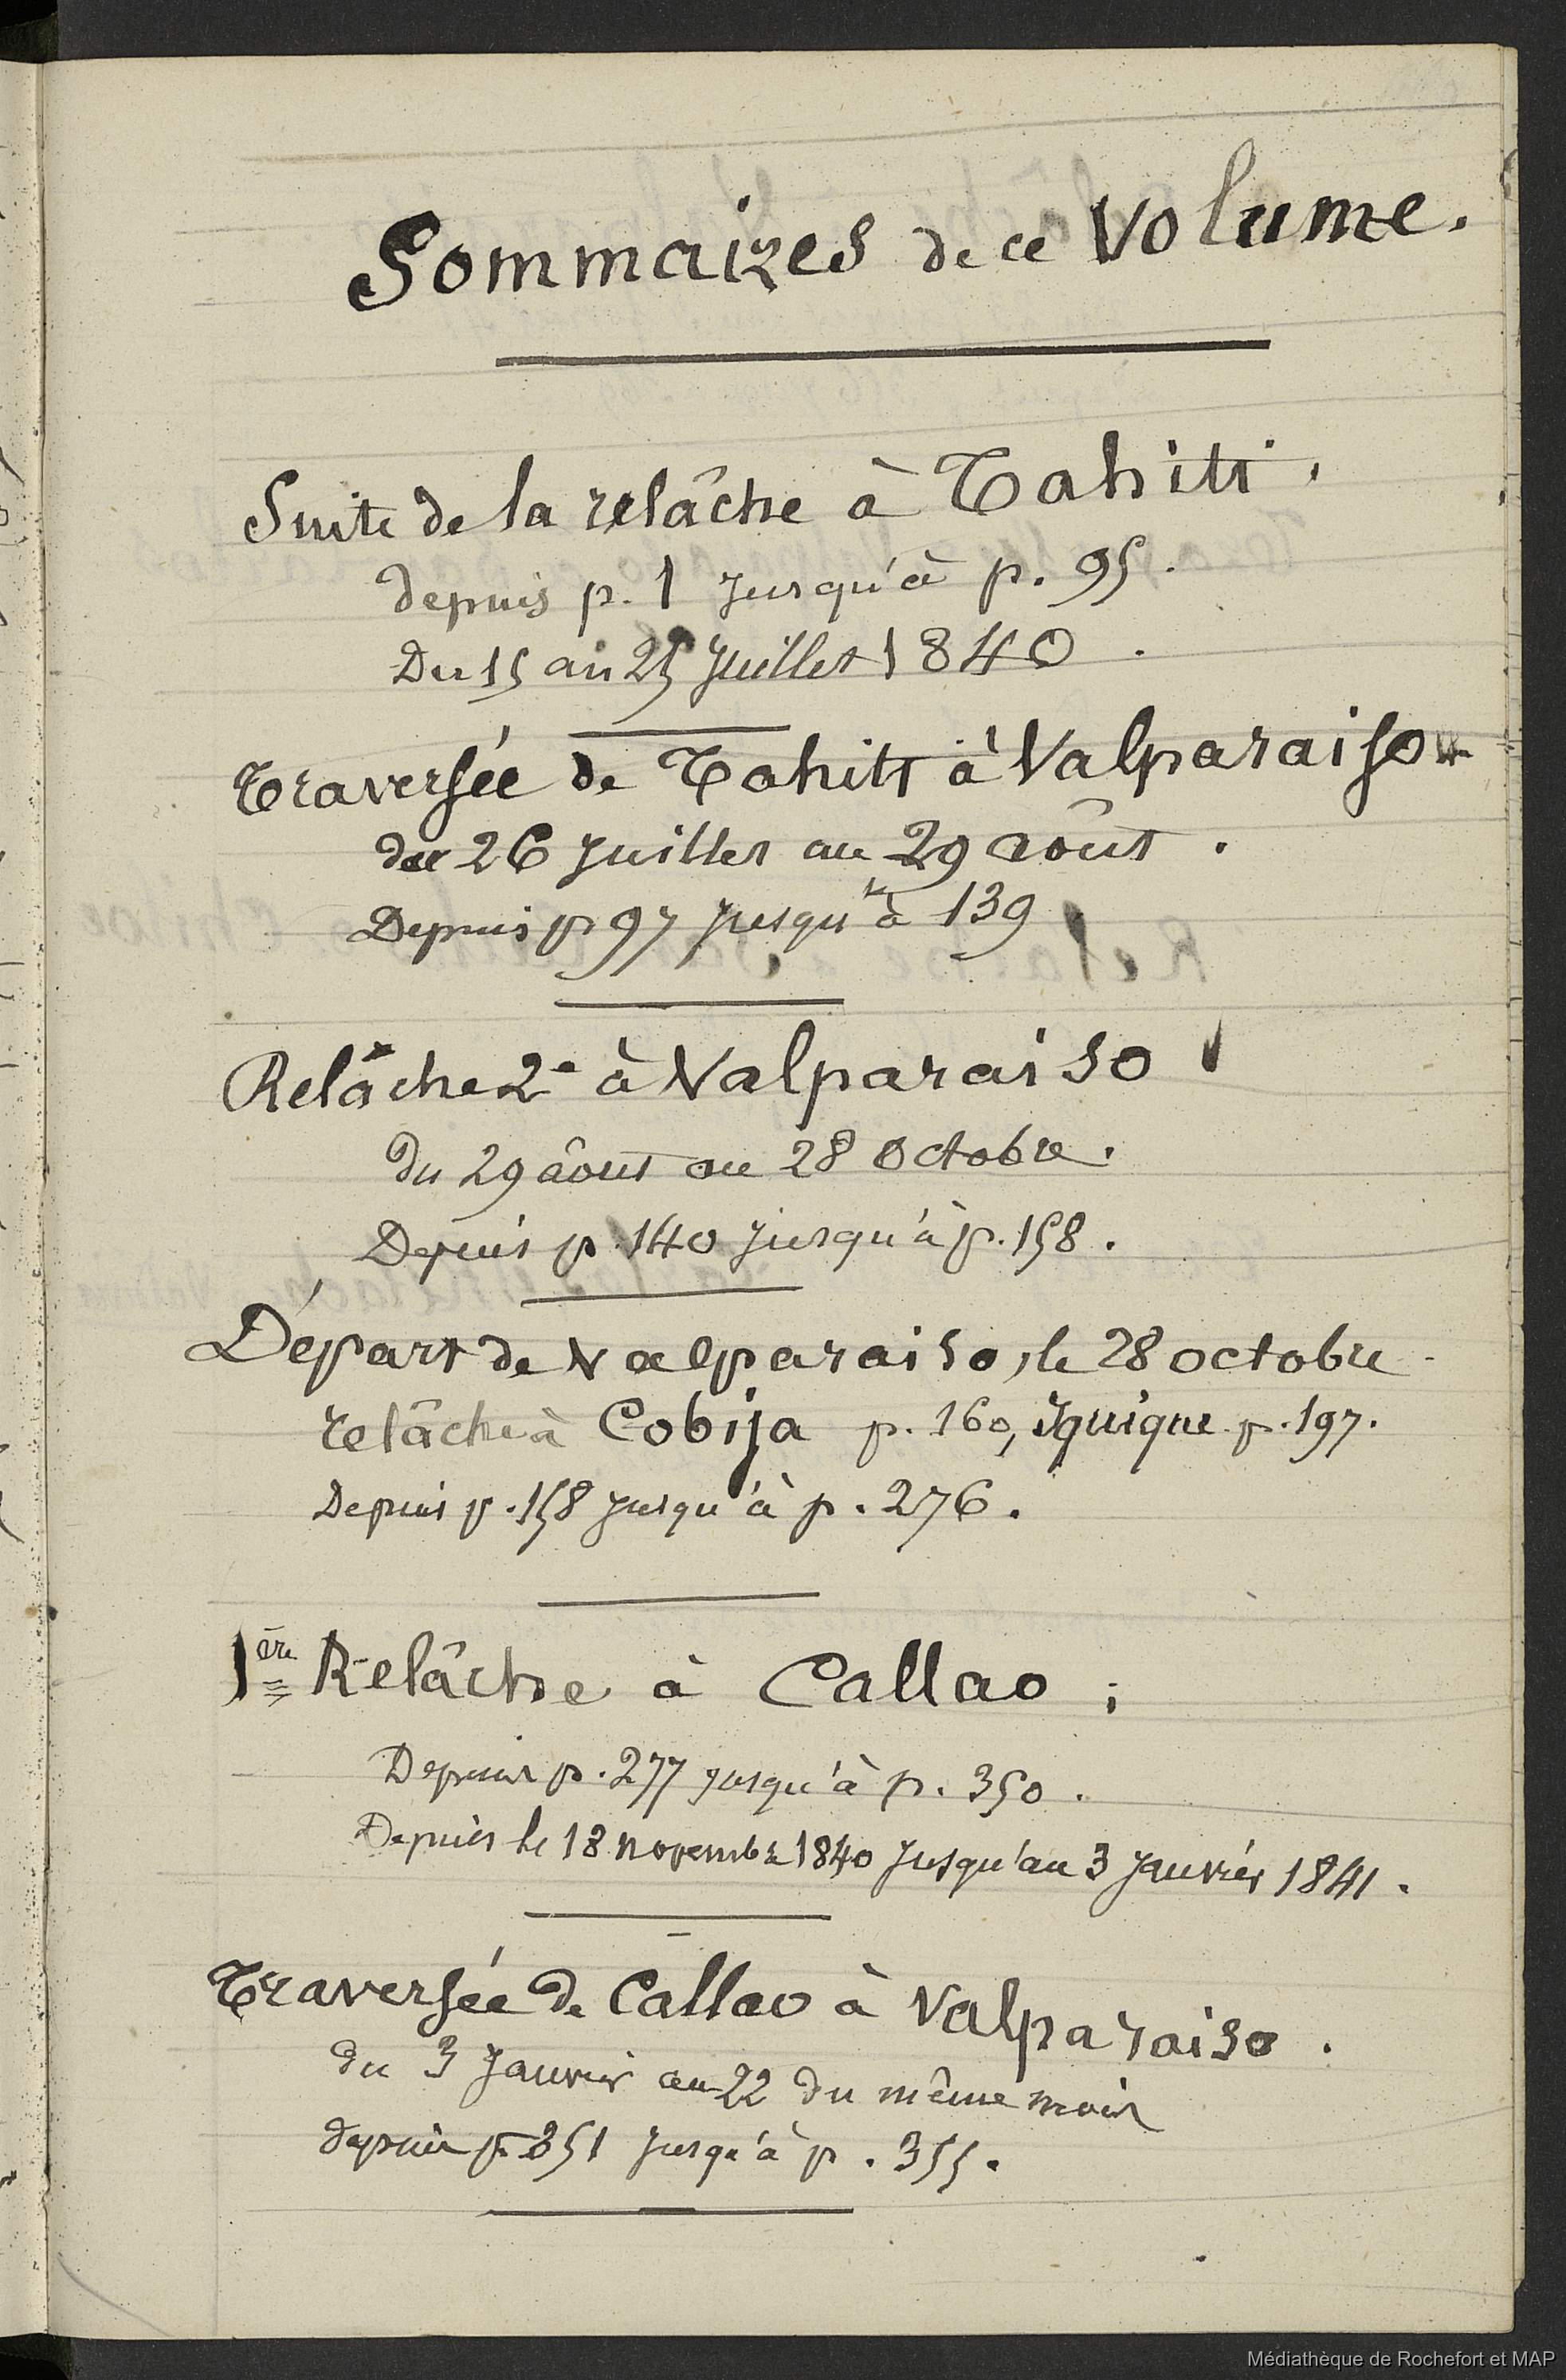 Sommaires de ce Volume.
Suite de la relâche à Tahiti.
depuis p. 1 jusqu'à p. 95.
Du 15 au 25 juillet 1840.
Traversée de Tahiti à Valparaiso
du 26 juillet au 29 août.
Depuis p 97 jusqu'à 139
Relâche 2e à Valparaiso
du 29 âout au 28 octobre.
Depuis p. 140 jusqu'à p. 158.
Départ de Valparaiso, le 28 octobre
relâche à Cobija p. 160, iquique p. 197.
Depuis p. 158 jusqu'à p. 276.
1ère Relâche à Callao ;
Depuis p. 277 jusqu'à p. 350.
Depuis le 18 novembre 1840 jusqu'au 3 janvier 1841.
Traversée de Callao à Valparaiso.
du 3 Janvier au 22 du même mois
depuis p. 351 jusqu'à p. 355.
Médiathèque de Rochefort et MAP